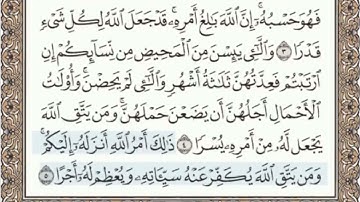 فَهُوَ حَسْبُهُۥٓ ۚ إِنَّ ٱللَّهَ بَٰلِغُ أَمْرِهِۦ ۚ قَدْ جَعَلَ ٱللَّهُ لِكُلِّ شَىْءٍ
قَدْرًا ٣ وَٱلَّٰٓـِٔى يَئِسْنَ مِنَ ٱلْمَحِيضِ مِن نِّسَآئِكُمْ إِنِ
ٱرْتَبْتُمْ فَعِدَّتُهُنَّ ثَلَٰثَةُ أَشْهُرٍ وَٱلَّٰٓـِٔى لَمْ يَحِضْنَ ۚ وَأُو۟لَٰتُ
ٱلْأَحْمَالِ أَجَلُهُنَّ أَن يَضَعْنَ حَمْلَهُنَّ ۚ وَمَن يَتَّقِ ٱللَّهَ
يَجْعَل لَّهُۥ مِنْ أَمْرِهِۦ يُسْرًا ٤ ذَٰلِكَ أَمْرُ ٱللَّهِ أَنزَلَهُۥٓ إِلَيْكُمْ ۚ
وَمَن يَتَّقِ ٱللَّهَ يُكَفِّرْ عَنْهُ سَيِّـَٔاتِهِۦ وَيُعْظِمْ لَهُۥٓ أَجْرًا ٥